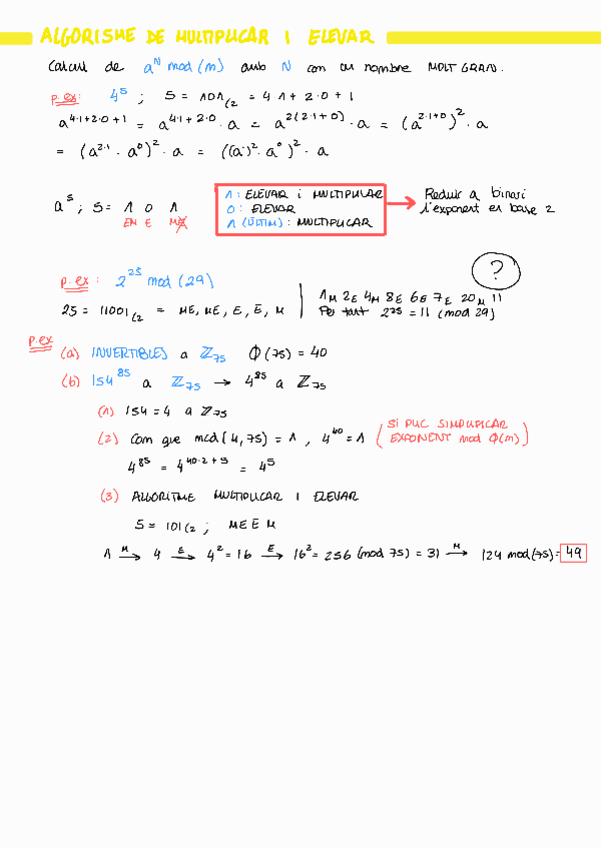 ALGORISME DE MULTIPLICAR I ELEVAR
Càlcul de a^N mod (m) amb N com au nombre MOLT GRAN.
p.ex: 4^5 ; 5 = 101_(2 = 4·1 + 2·0 + 1
a^(4·1+2·0+1) = a^(4·1+2·0) · a = a^(2(2·1+0)) · a = (a^(2·1+0))^2 · a
= (a^(2·1) · a^0)^2 · a = ((a^1)^2 · a^0)^2 · a
a^5 ; 5 = 1 0 1
EM E M
1: ELEVAR i MULTIPLICAR
0: ELEVAR
1 (ÚLTIM): MULTIPLICAR
Reduir a binari
l'exponent en base 2
?
p.ex: 2^25 mod (29)
25 = 11001_(2 = ME, ME, E, E, M
1 M 2 E 4 M 8 E 6 E 7 E 20 M 11
Per tant 2^25 = 11 (mod 29)
p.ex
(a) INVERTIBLES a ℤ_75 Φ(75) = 40
(b) 154^85 a ℤ_75 → 4^85 a ℤ_75
(1) 154 = 4 a ℤ_75
(2) Com que mcd(4,75) = 1 , 4^40 = 1 (SI PUC SIMPLIFICAR
EXPONENT mod Φ(m))
4^85 = 4^(40·2+5) = 4^5
(3) ALGORITME MULTIPLICAR I ELEVAR
5 = 101_(2 ; ME E M
1 M→ 4 E→ 4^2 = 16 E→ 16^2 = 256 (mod 75) = 31 M→ 124 mod(75) = 49